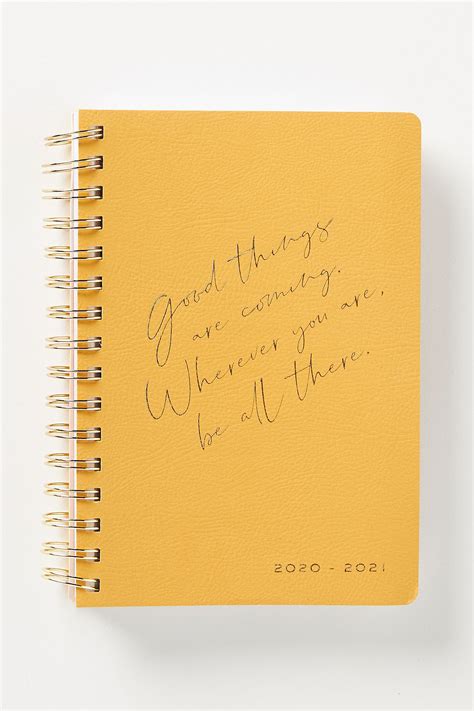 Good things
are coming.
Wherever you are,
be all there.
2020 - 2021